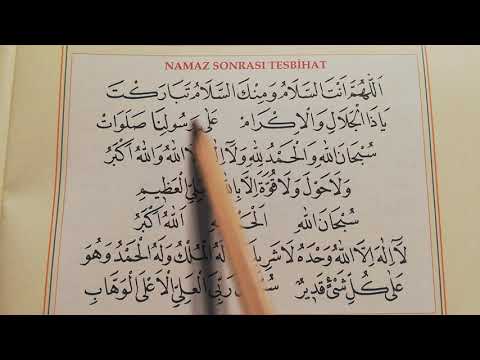 NAMAZ SONRASI TESBİHAT
اَللّٰهُمَّ اَنْتَ السَّلَامُ وَمِنْكَ السَّلَامُ تَبَارَكْتَ
يَاذَا الْجَلَالِ وَالْاِكْرَامِ عَلٰى رَسُولِنَا صَلَوَاتٌ
سُبْحَانَ اللّٰهِ وَالْحَمْدُ لِلّٰهِ وَلَٓا اللّٰهُ وَاللّٰهُ اَكْبَرُ
وَلَاحَوْلَ وَلَا قُوَّةَ اِلَّا الْعَظِيمِ
سُبْحَانَ اللّٰهِ اَللّٰهُ اَكْبَرُ
لَٓا اِلٰهَ اِلَّا اللّٰهُ وَحْدَهُ لَا لَهُ الْمُلْكُ وَلَهُ الْحَمْدُ وَهُوَ
عَلٰى كُلِّ شَىْءٍ قَدِيرٌ رَبِّىَ الْعَلِىِّ الْاَعْلَى الْوَهَّابِ